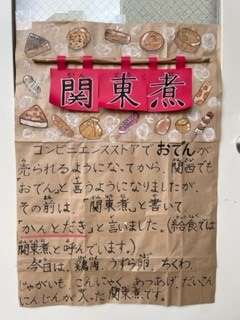 関東煮
コンビニエンスストアで おでんが
売られるようになってから、関西でも
おでんと言うようになりましたが、
その前は、「関東煮」と書いて
「かんとだき」と言いました。(給食では
関東煮と呼んでいます。)
今日は、鶏肉、うずら卵、ちくわ、
じゃがいも、こんにゃく、あつあげ、だいこん
にんじんが入った関東煮です。